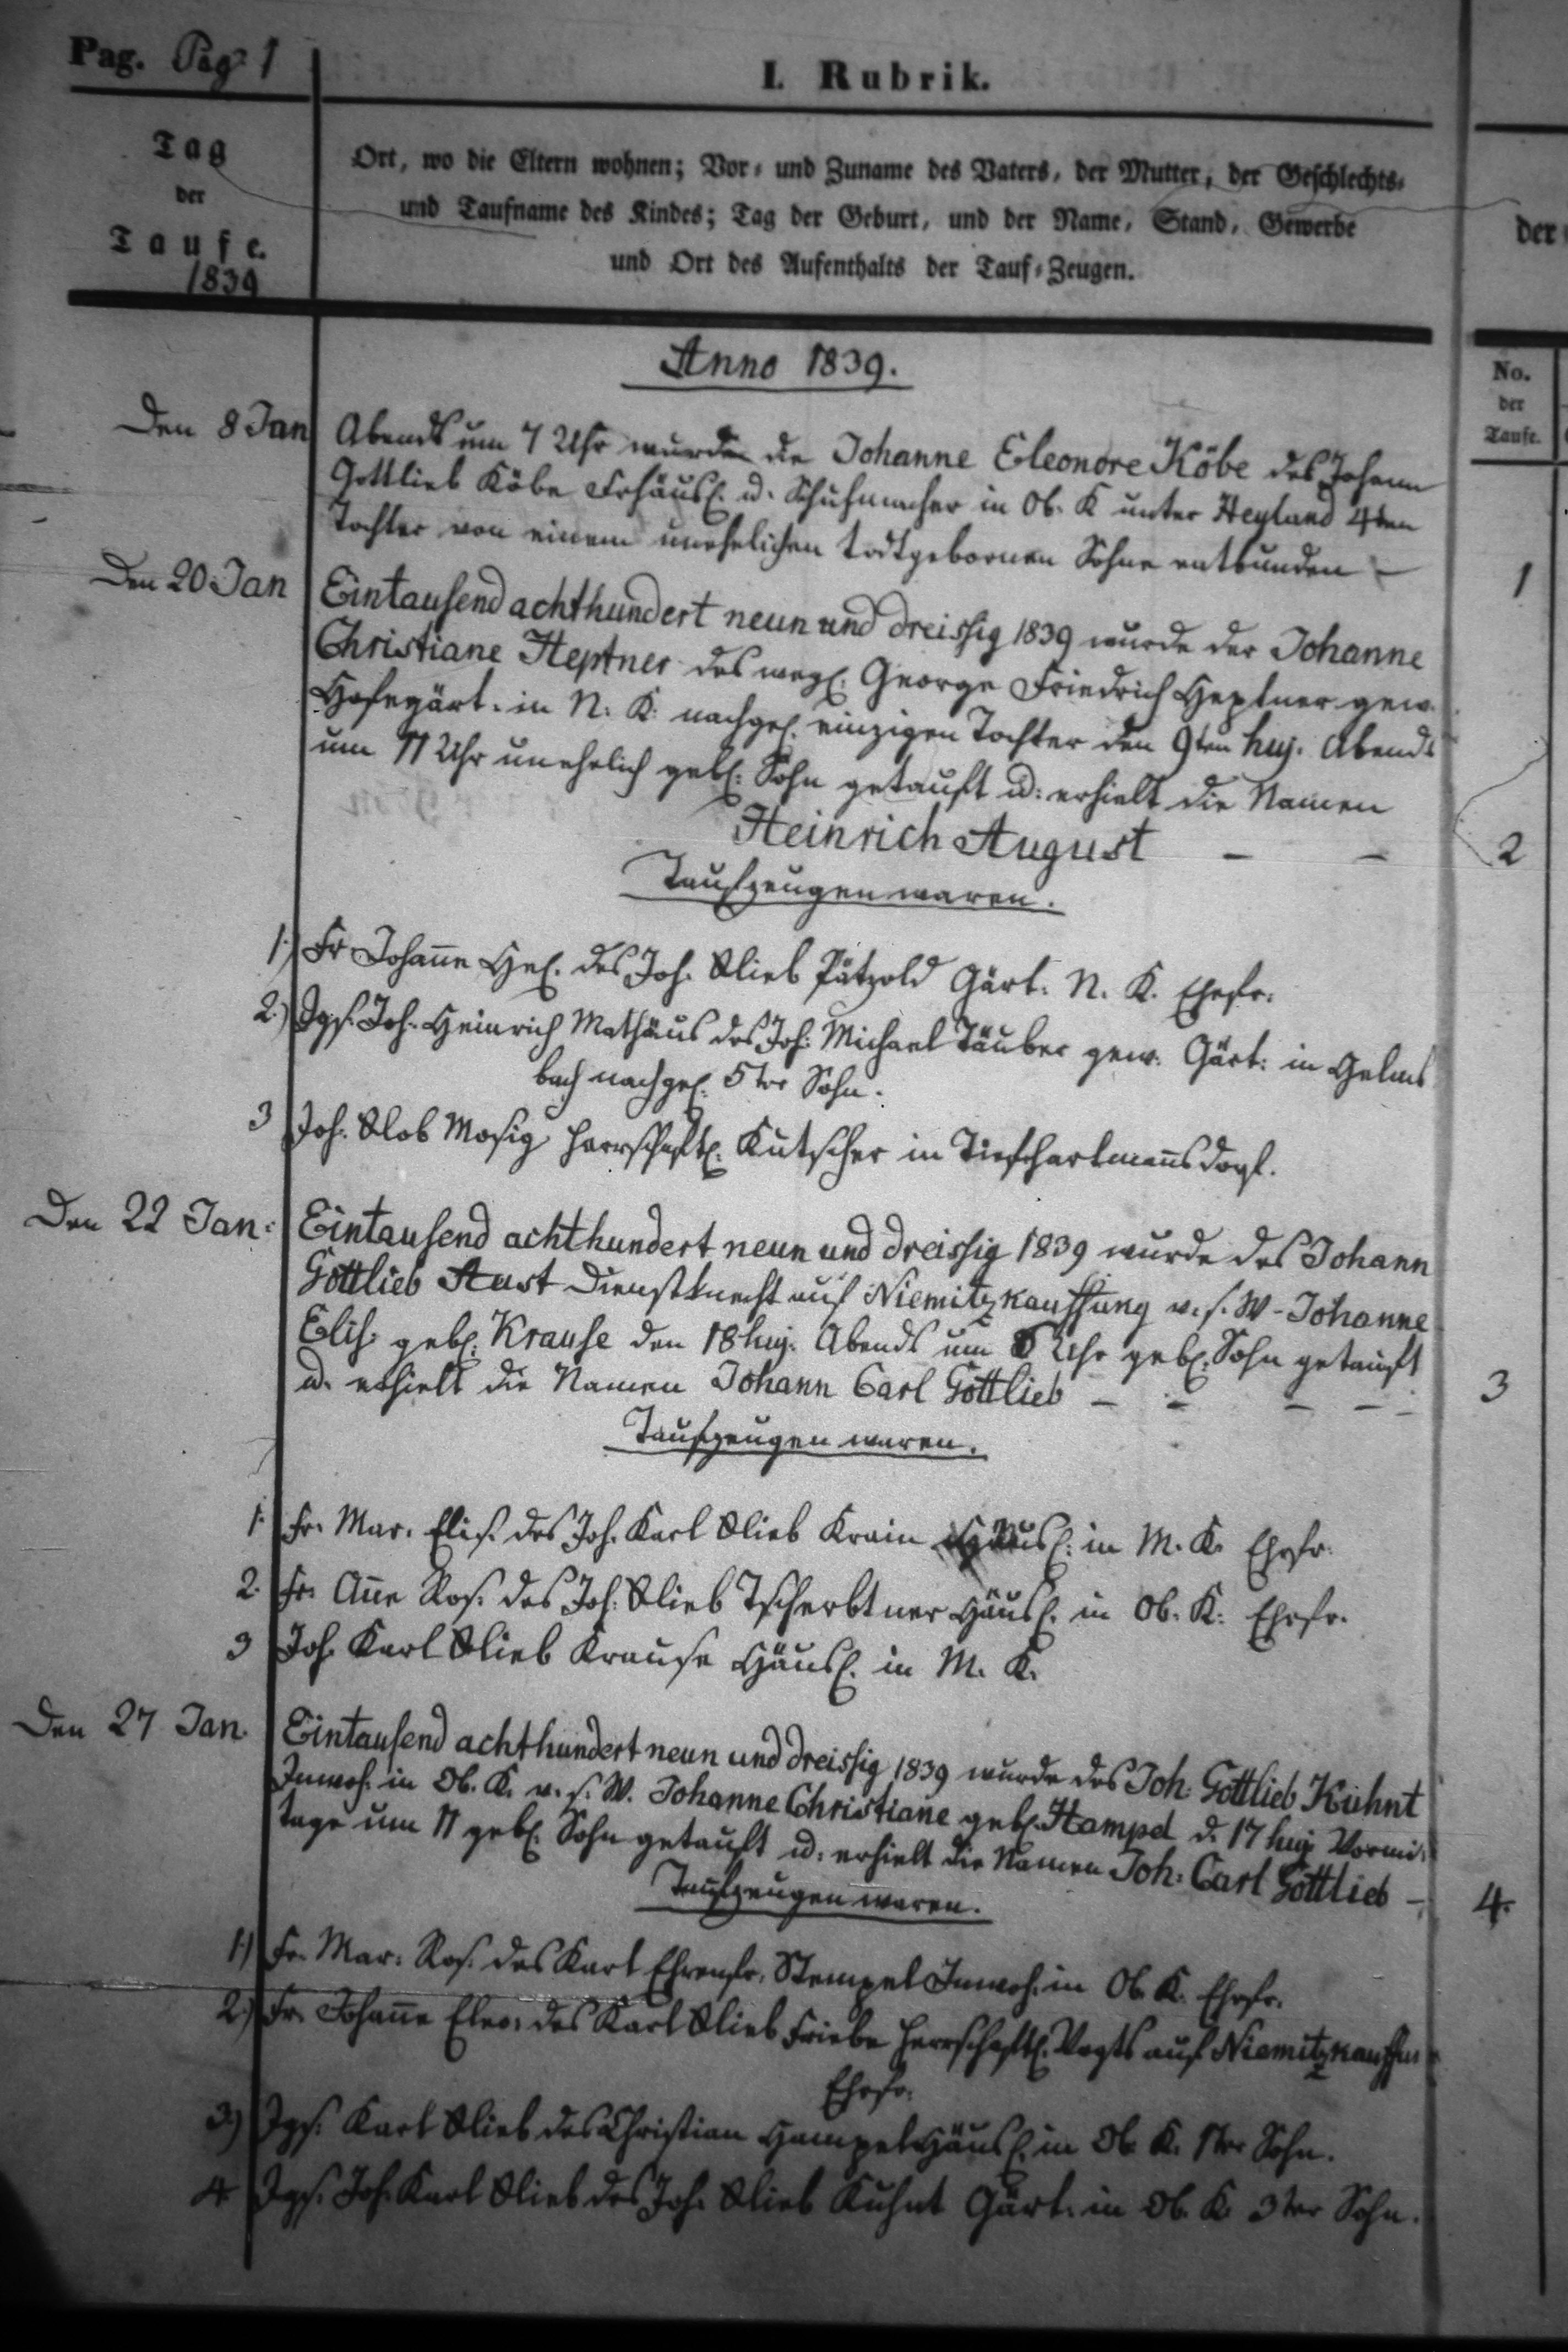 Pag. Pag 1
I. Rubrik.
Tag
der
Taufe.
1839
Ort, wo die Eltern wohnen; Vor- und Zuname des Vaters, der Mutter, der Geschlechts-
und Taufname des Kindes; Tag der Geburt, und der Name, Stand, Gewerbe
und Ort des Aufenthalts der Tauf-Zeugen.
der
No.
der
Taufe.
Anno 1839.
Den 8 Jan
Abends um 7 Uhr wurde die Johanne Eleonore Köbe des Johann
Gottlieb Köbe Frhäusl. u. Schuhmacher in Ob. K unter Heyland 4ten
Tochter von einem unehelichen todtgebornen Sohne entbunden –
1
Den 20 Jan
Eintausend achthundert neun und dreissig 1839 wurde der Johanne
Christiane Heptner des weyl. George Friedrich Heptner gew.
Hofegärt. in N. K. nachgel. einzigen Tochter den 9ten huj. Abends
um 11 Uhr unehelich gebl. Sohn getauft u. erhielt die Namen
Heinrich August – –
2
Taufzeugen waren.
1.) Fr Johanne Hel. des Joh. Glieb Pätzold Gärt. N. K. Ehefr.
2.) Jgs. Joh. Heinrich Mathäus des Joh. Michael Täuber gew. Gärt. in Helms
bach nachgel. 5ter Sohn.
3 Joh. Glob Mosig herrschaftl. Kutscher in Tiefhartmannsdorf.
Den 22 Jan:
Eintausend achthundert neun und dreissig 1839 wurde des Johann
Gottlieb Aust Dienstknecht auf Niemitzkauffung u. s. W. Johanne
Elis. gebl. Krause den 18 huj. Abends um 6 Uhr gebl. Sohn getauft
u. erhielt die Namen Johann Carl Gottlieb – – – – –
3
Taufzeugen waren.
1. Fr. Mar. Elis. des Joh. Karl Glieb Krain Häusl. in M. K. Ehefr.
2. Fr. Anne Ros. des Joh. Glieb Tscherbtner Häusl. in Ob. K. Ehefr.
3 Joh. Karl Glieb Krause Häusl. in M. K.
Den 27 Jan.
Eintausend achthundert neun und dreissig 1839 wurde des Joh. Gottlieb Kuhnt
Inwoh. in Ob. K. u. s. W. Johanne Christiane gebl. Hampel d. 17 huj. Vormit
tags um 11 gebl. Sohn getauft u. erhielt die Namen Joh. Carl Gottlieb –
4.
Taufzeugen waren.
1.) Fr. Mar. Ros. des Karl Ehrenfr. Stempel Inwoh. in Ob. K. Ehefr.
2.) Fr. Johanne Eleo. des Karl Glieb Friebe herrschaftl. Vogts auf Niemitzkauffun
Ehefr.
3.) Jgs. Karl Glieb des Christian Hampel Häusl. in Ob. K. 1ter Sohn.
4 Jgs. Joh. Karl Glieb des Joh. Glieb Kuhnt Gärt. in Ob. K. 3ter Sohn.